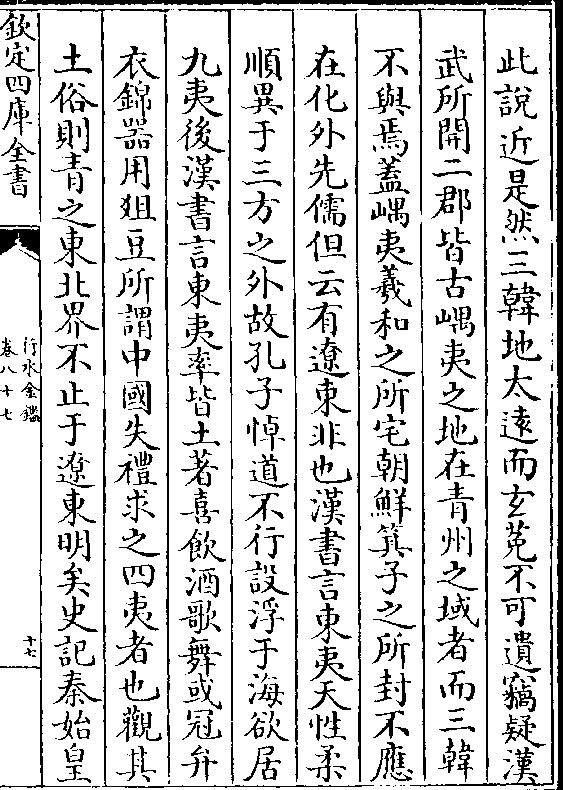 此說近是然三韓地太逺而玄莬不可遺竊疑漢
武所開二郡皆古嵎夷之地在青州之域者而三韓
不與焉蓋嵎夷羲和之所宅朝鮮箕子之所封不應
在化外先儒但云有遼東非也漢書言東夷天性柔
順異于三方之外故孔子悼道不行設浮于海欲居
九夷後漢書言東夷率皆土著喜飲酒歌舞或冠弁
衣錦器用俎豆所謂中國失禮求之四夷者也觀其
土俗則青之東北界不止于遼東明矣史記秦始皇
欽定四庫全書
行水金鑑
卷八十七
十七